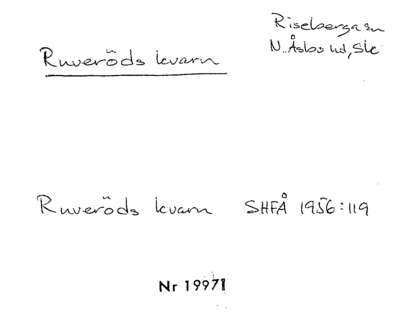 Riseberga sn
N. Åsbo hd, Sk
Ruveröds kvarn
Ruveröds kvarn SHFÅ 1956:119
Nr 19971